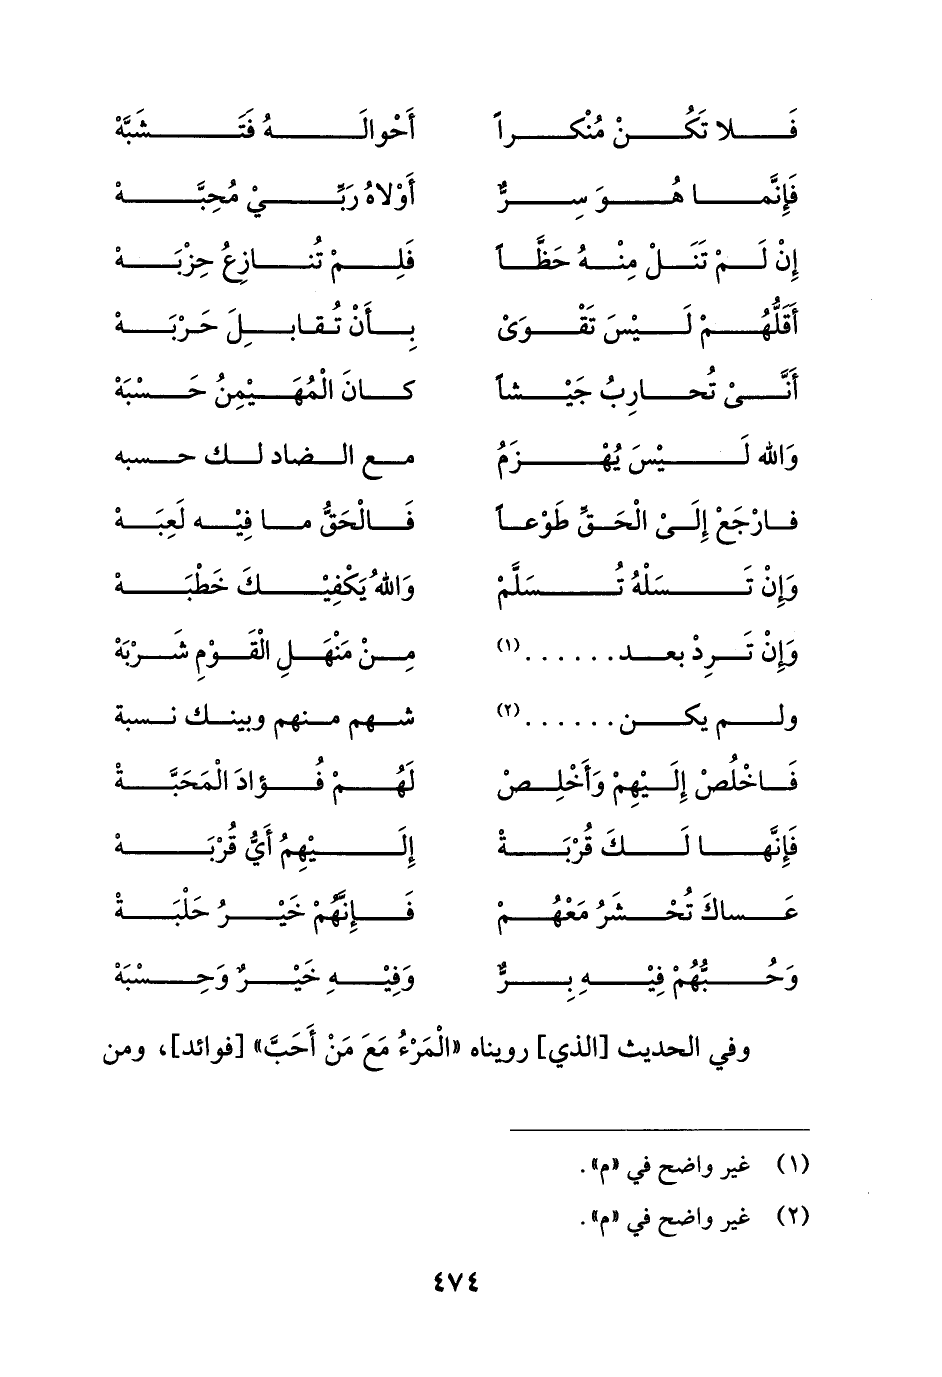 فَلا تَكُنْ مُنْكِراً أَحْوالَهُ فَتَشَبَّهْ
فَإِنَّما هُوَ سِرٌّ أَوْلاهُ رَبِّيْ مُحِبَّهْ
إِنْ لَمْ تَنَلْ مِنْهُ حَظَّاً فَلِمْ تُنازِعُ حِزْبَهْ
أَقَلُّهُمْ لَيْسَ تَقْوَىْ بِأَنْ تُقابِلَ حَرْبَهْ
أَنَّىْ تُحارِبُ جَيْشاً كانَ الْمُهَيْمِنُ حَسْبَهْ
وَالله لَيْسَ يُهْزَمُ مع الضاد لك حسبه
فارْجَعْ إِلَىْ الْحَقِّ طَوْعاً فَالْحَقُّ ما فِيْه لَعِبَهْ
وَإِنْ تَسَلْهُ تُسَلَّمْ وَاللهُ يَكْفِيْكَ خَطْبَهْ
وَإِنْ تَرِدْ بعد ......(١) مِنْ مَنْهَلِ الْقَوْمِ شَرْبَهْ
ولم يكن ......(٢) شهم منهم وبينك نسبة
فَاخْلُصْ إِلَيْهِمْ وَأَخْلِصْ لَهُمْ فُؤادَ الْمَحَبَّةْ
فَإِنَّها لَكَ قُرْبَةْ إِلَيْهِمُ أَيُّ قُرْبَهْ
عَساكَ تُحْشَرُ مَعْهُمْ فَإِنَّهُمْ خَيْرُ حَلْبَةْ
وَحُبُّهُمْ فِيْهِ بِرٌّ وَفِيْهِ خَيْرٌ وَحِسْبَهْ
وفي الحديث [الذي] رويناه «الْمَرْءُ مَعَ مَنْ أَحَبَّ» [فوائد]، ومن
(١) غير واضح في «م».
(٢) غير واضح في «م».
٤٧٤